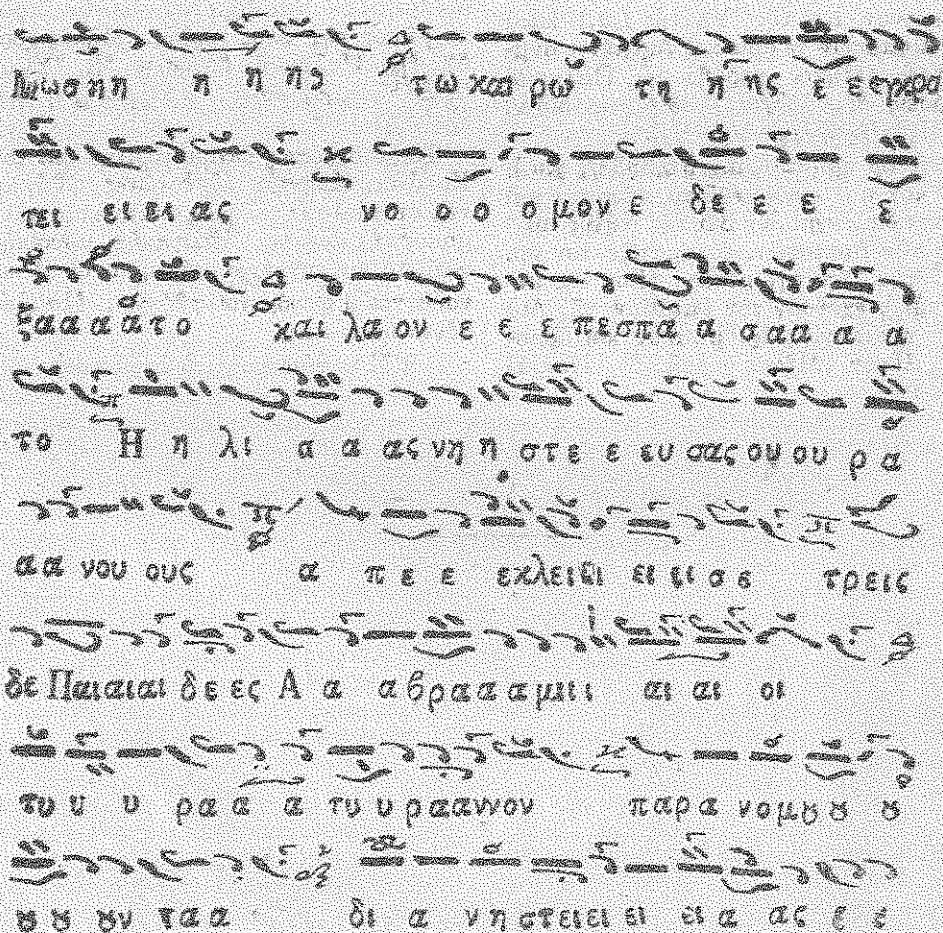 Μωσηη η η ης τω και ρω τη η ης ε εεγκρα
τει ει ει ας νο ο ο ο μον ε δε ε ε ε
ξααα ατο και λα ον ε ε ε πεσπα α σαα α α
το Η η λι α α ας νη η στε ε ευ σας ου ου ρα
αα νου ους α πε ε εκλειειει ει ει σε τρεις
δε Παιαιαι δε ες Α α αβρααα μιιι αι αι οι
τυ υ υ ρα α α τυ υ ρααννον παρα νομȣ ȣ ȣ
ȣ ȣ ȣν ταα δι α νη στειει ει ει α ας ε ε